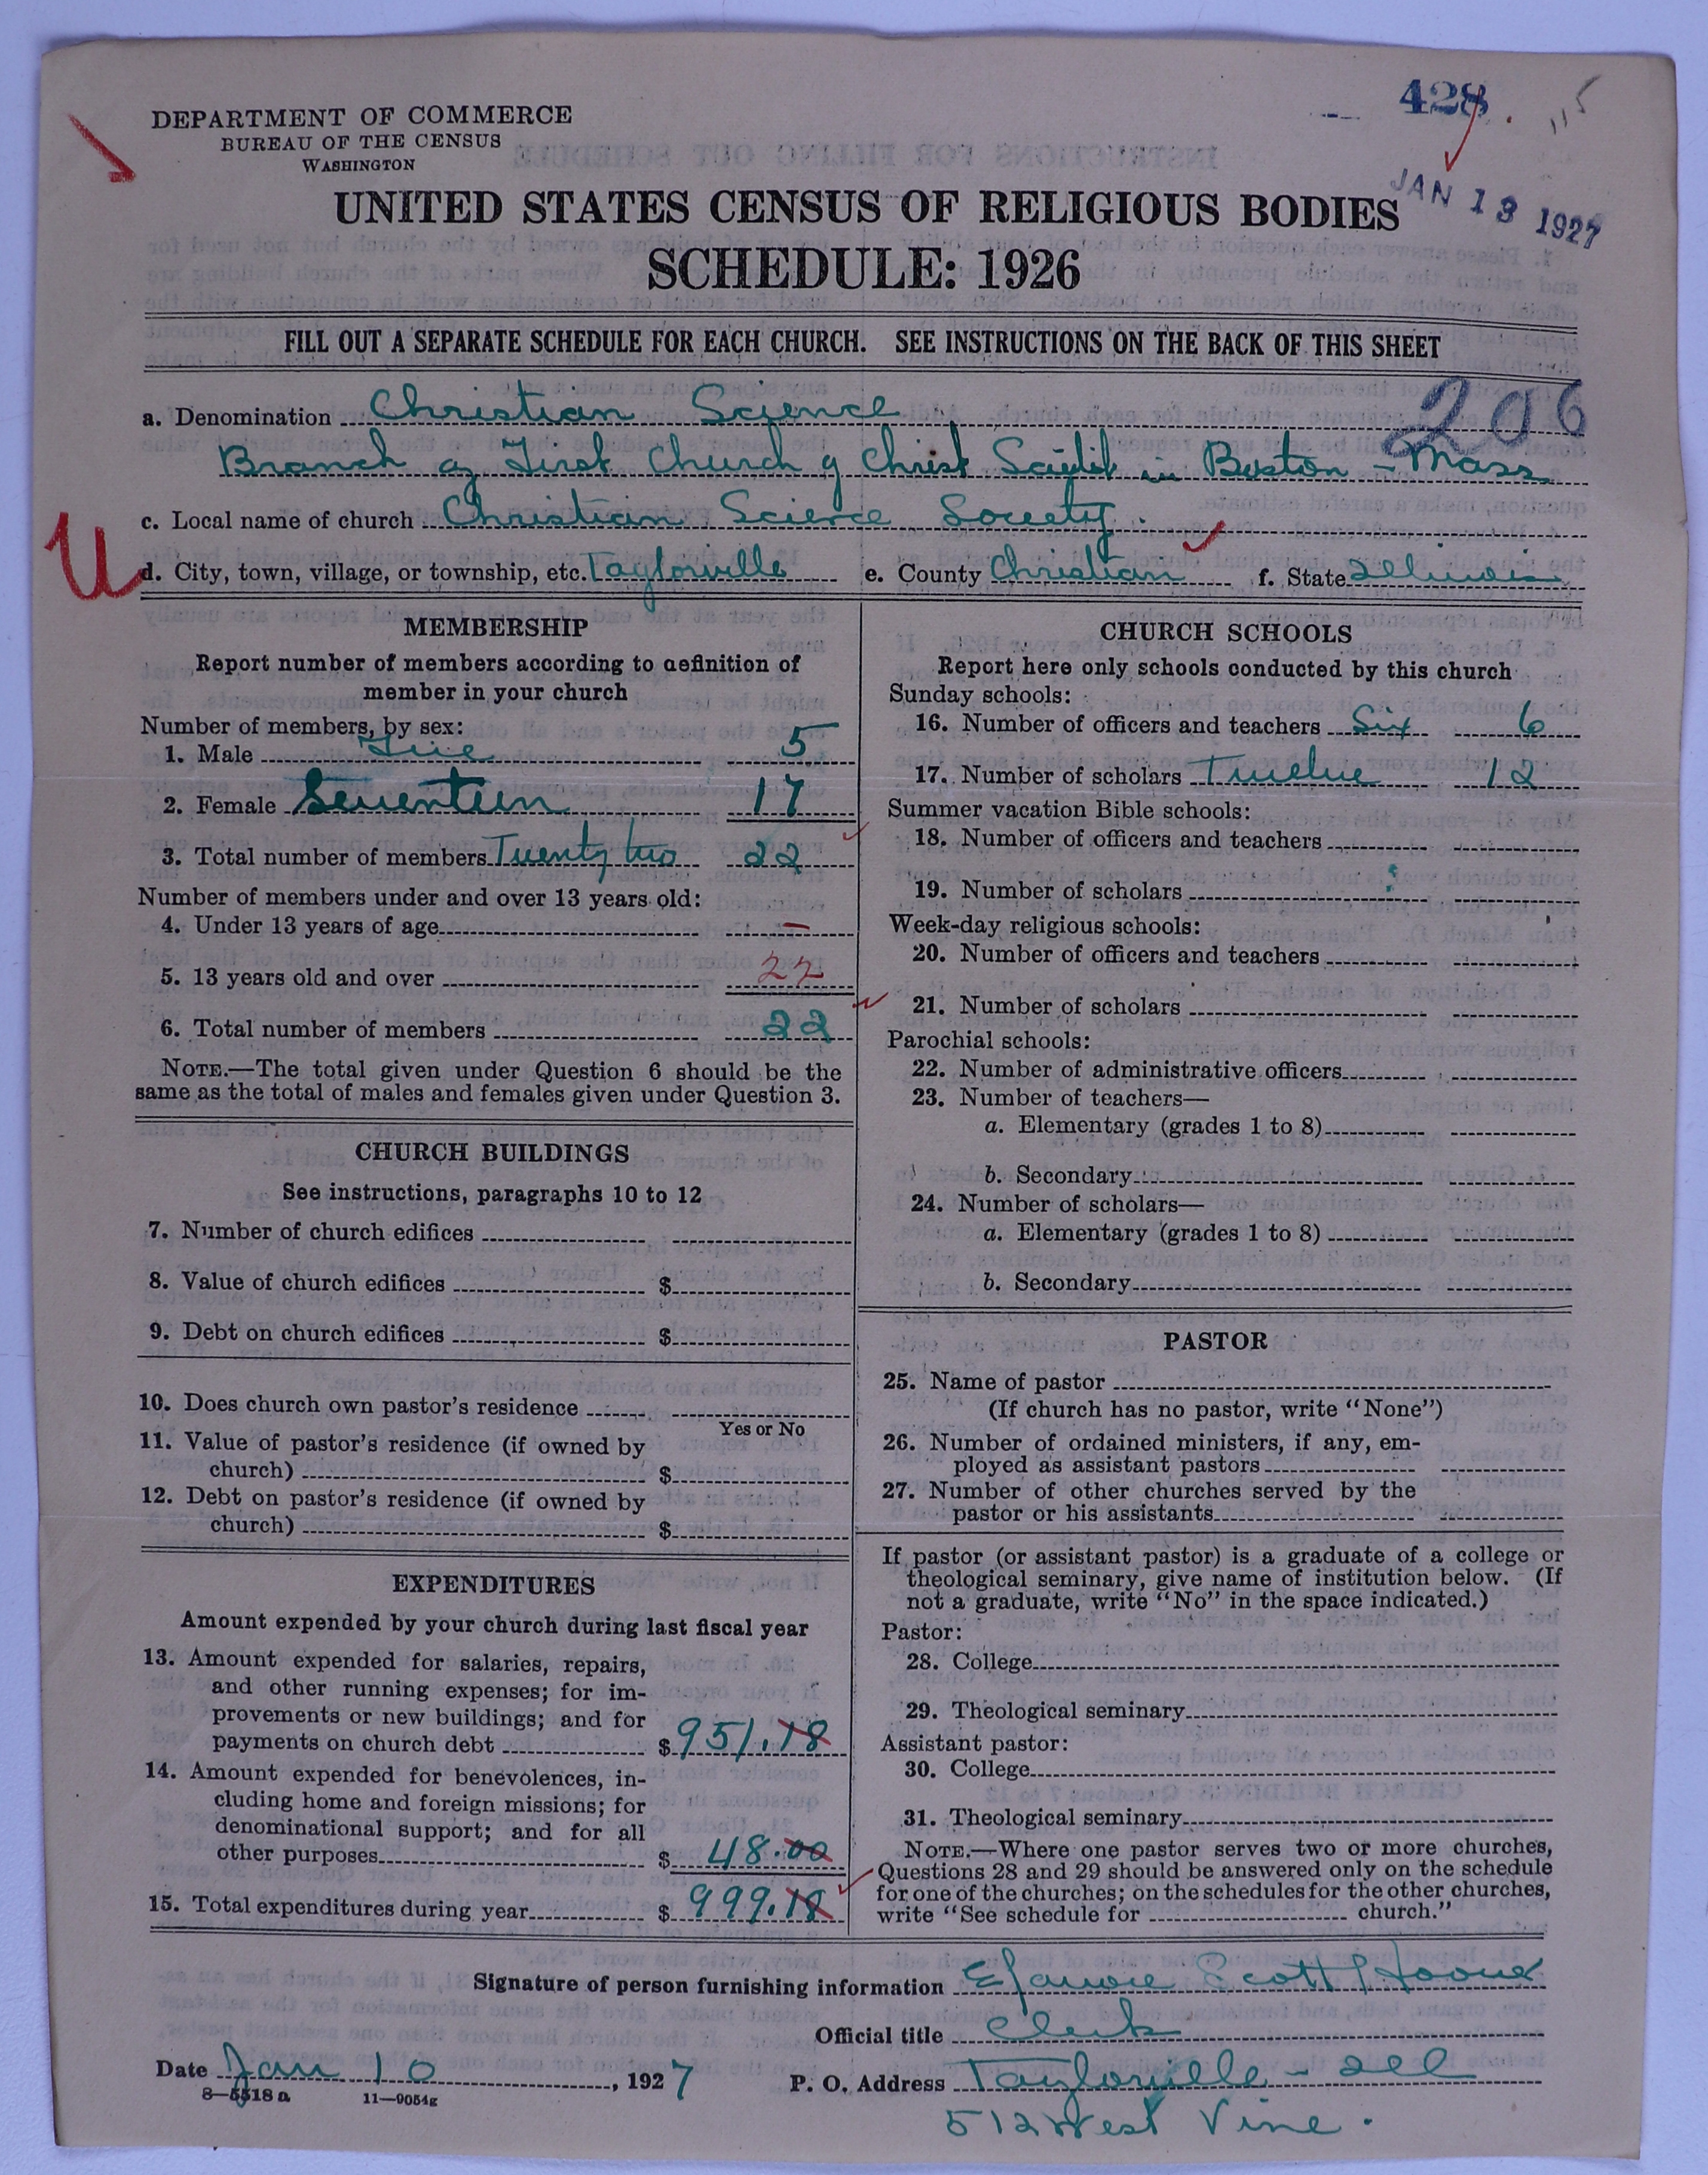 428
115
DEPARTMENT OF COMMERCE
BUREAU OF THE CENSUS
WASHINGTON
JAN 13 1927
UNITED STATES CENSUS OF RELIGIOUS BODIES
SCHEDULE: 1926
FILL OUT A SEPARATE SCHEDULE FOR EACH CHURCH. SEE INSTRUCTIONS ON THE BACK OF THIS SHEET
206
a. Denomination Christian Science
Branch of First Church of Christ Scientist in Boston - Mass
c. Local name of church Christian Science Society.
U
d. City, town, village, or township, etc. Taylorville e. County Christian f. State Illinois
MEMBERSHIP
Report number of members according to definition of
member in your church
Number of members, by sex:
1. Male Five 5
2. Female Seventeen 17
3. Total number of members Twenty two 22
Number of members under and over 13 years old:
4. Under 13 years of age –
5. 13 years old and over 22
6. Total number of members 22
NOTE.—The total given under Question 6 should be the
same as the total of males and females given under Question 3.
CHURCH BUILDINGS
See instructions, paragraphs 10 to 12
7. Number of church edifices
8. Value of church edifices $
9. Debt on church edifices $
10. Does church own pastor's residence
Yes or No
11. Value of pastor's residence (if owned by
church) $
12. Debt on pastor's residence (if owned by
church) $
EXPENDITURES
Amount expended by your church during last fiscal year
13. Amount expended for salaries, repairs,
and other running expenses; for im-
provements or new buildings; and for
payments on church debt $ 951.18
14. Amount expended for benevolences, in-
cluding home and foreign missions; for
denominational support; and for all
other purposes $ 48.00
15. Total expenditures during year $ 999.18
CHURCH SCHOOLS
Report here only schools conducted by this church
Sunday schools:
16. Number of officers and teachers Six 6
17. Number of scholars Twelve 12
Summer vacation Bible schools:
18. Number of officers and teachers
19. Number of scholars
Week-day religious schools:
20. Number of officers and teachers
21. Number of scholars
Parochial schools:
22. Number of administrative officers
23. Number of teachers—
a. Elementary (grades 1 to 8)
b. Secondary
24. Number of scholars—
a. Elementary (grades 1 to 8)
b. Secondary
PASTOR
25. Name of pastor
(If church has no pastor, write "None")
26. Number of ordained ministers, if any, em-
ployed as assistant pastors
27. Number of other churches served by the
pastor or his assistants
If pastor (or assistant pastor) is a graduate of a college or
theological seminary, give name of institution below. (If
not a graduate, write "No" in the space indicated.)
Pastor:
28. College
29. Theological seminary
Assistant pastor:
30. College
31. Theological seminary
NOTE.—Where one pastor serves two or more churches,
Questions 28 and 29 should be answered only on the schedule
for one of the churches; on the schedules for the other churches,
write "See schedule for church."
Signature of person furnishing information Scott
Official title Clerk
Date Jan 10, 1927 P. O. Address Taylorville - Ill
8—5518a 11—9054g
512 West Vine.